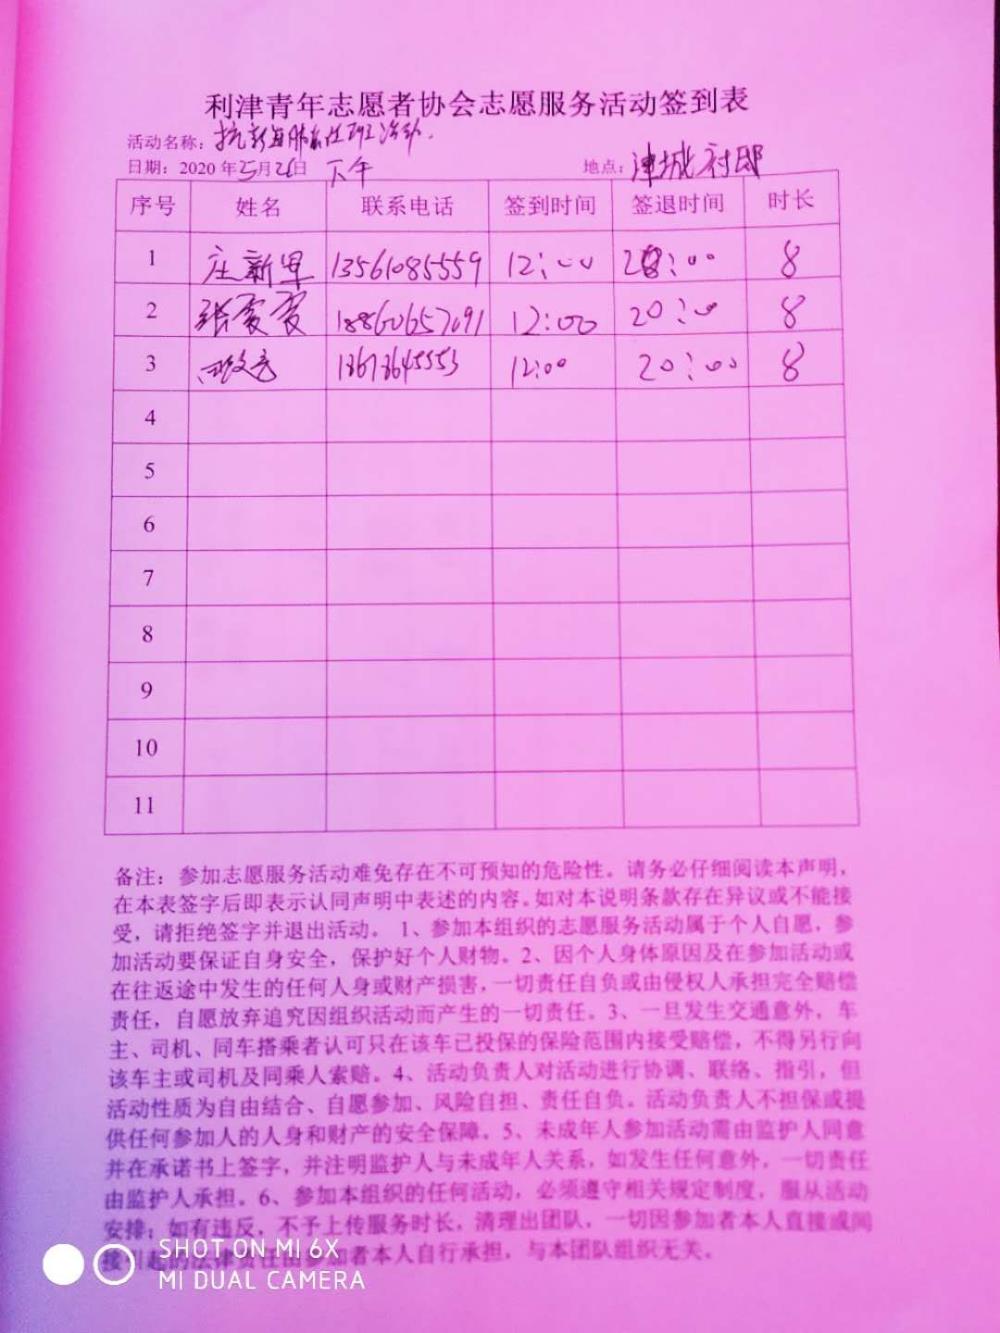 利津青年志愿者协会志愿服务活动签到表
活动名称：抗新冠肺炎
日期：2020年5月26日 下午 地点：津城
序号 姓名 联系电话 签到时间 签退时间 时长
1 庄新 13561085559 12:00 20:00 8
2 张霞霞 18860657091 12:00 20:00 8
3 12:00 20:00 8
4
5
6
7
8
9
10
11
备注：参加志愿服务活动难免存在不可预知的危险性。请务必仔细阅读本声明，
在本表签字后即表示认同声明中表述的内容。如对本说明条款存在异议或不能接
受，请拒绝签字并退出活动。 1、参加本组织的志愿服务活动属于个人自愿，参
加活动要保证自身安全，保护好个人财物。2、因个人身体原因及在参加活动或
在往返途中发生的任何人身或财产损害，一切责任自负或由侵权人承担完全赔偿
责任，自愿放弃追究因组织活动而产生的一切责任。3、一旦发生交通意外，车
主、司机、同车搭乘者认可只在该车已投保的保险范围内接受赔偿，不得另行向
该车主或司机及同乘人索赔。4、活动负责人对活动进行协调、联络、指引，但
活动性质为自由结合、自愿参加、风险自担、责任自负。活动负责人不担保或提
供任何参加人的人身和财产的安全保障。5、未成年人参加活动需由监护人同意
并在承诺书上签字，并注明监护人与未成年人关系，如发生任何意外，一切责任
由监护人承担。6、参加本组织的任何活动，必须遵守相关规定制度，服从活动
安排；如有违反，不予上传服务时长，清理出团队，一切因参加者本人直接或间
接引起的法律责任由参加者本人自行承担，与本团队组织无关。
SHOT ON MI 6X
MI DUAL CAMERA